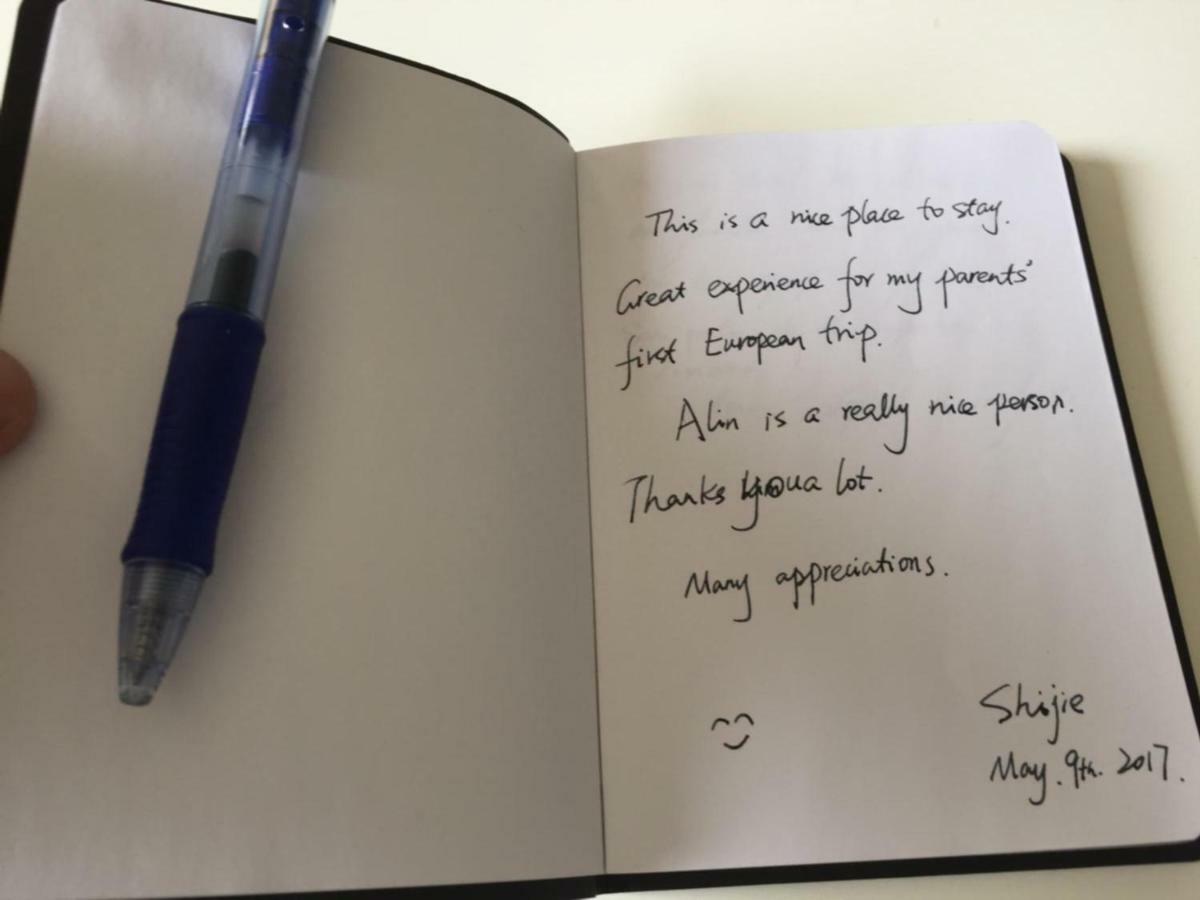 This is a nice place to stay.
Great experience for my parents'
first European trip.
Alin is a really nice person.
Thanks you a lot.
Many appreciations.
Shijie
May. 9th. 2017.